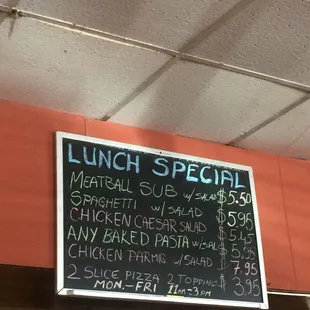 LUNCH SPECIAL
MEATBALL SUB W/SALAD $5.50
SPAGHETTI W/SALAD $5.95
CHICKEN CAESAR SALAD $5.45
ANY BAKED PASTA W/SAL $5.95
CHICKEN PARMIG W/SALAD $7.95
2 SLICE PIZZA 2 TOPPING $3.95
MON.-FRI 11AM-3PM